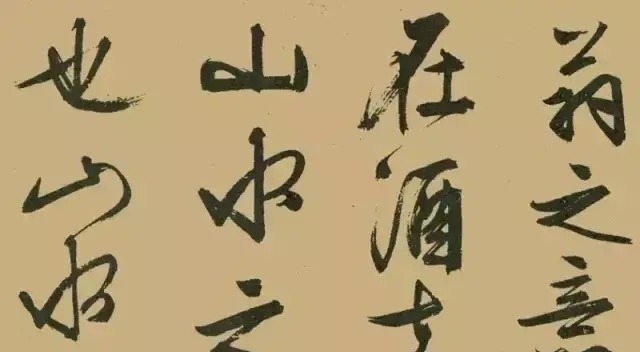 翁之意
在酒
山水之
也山水